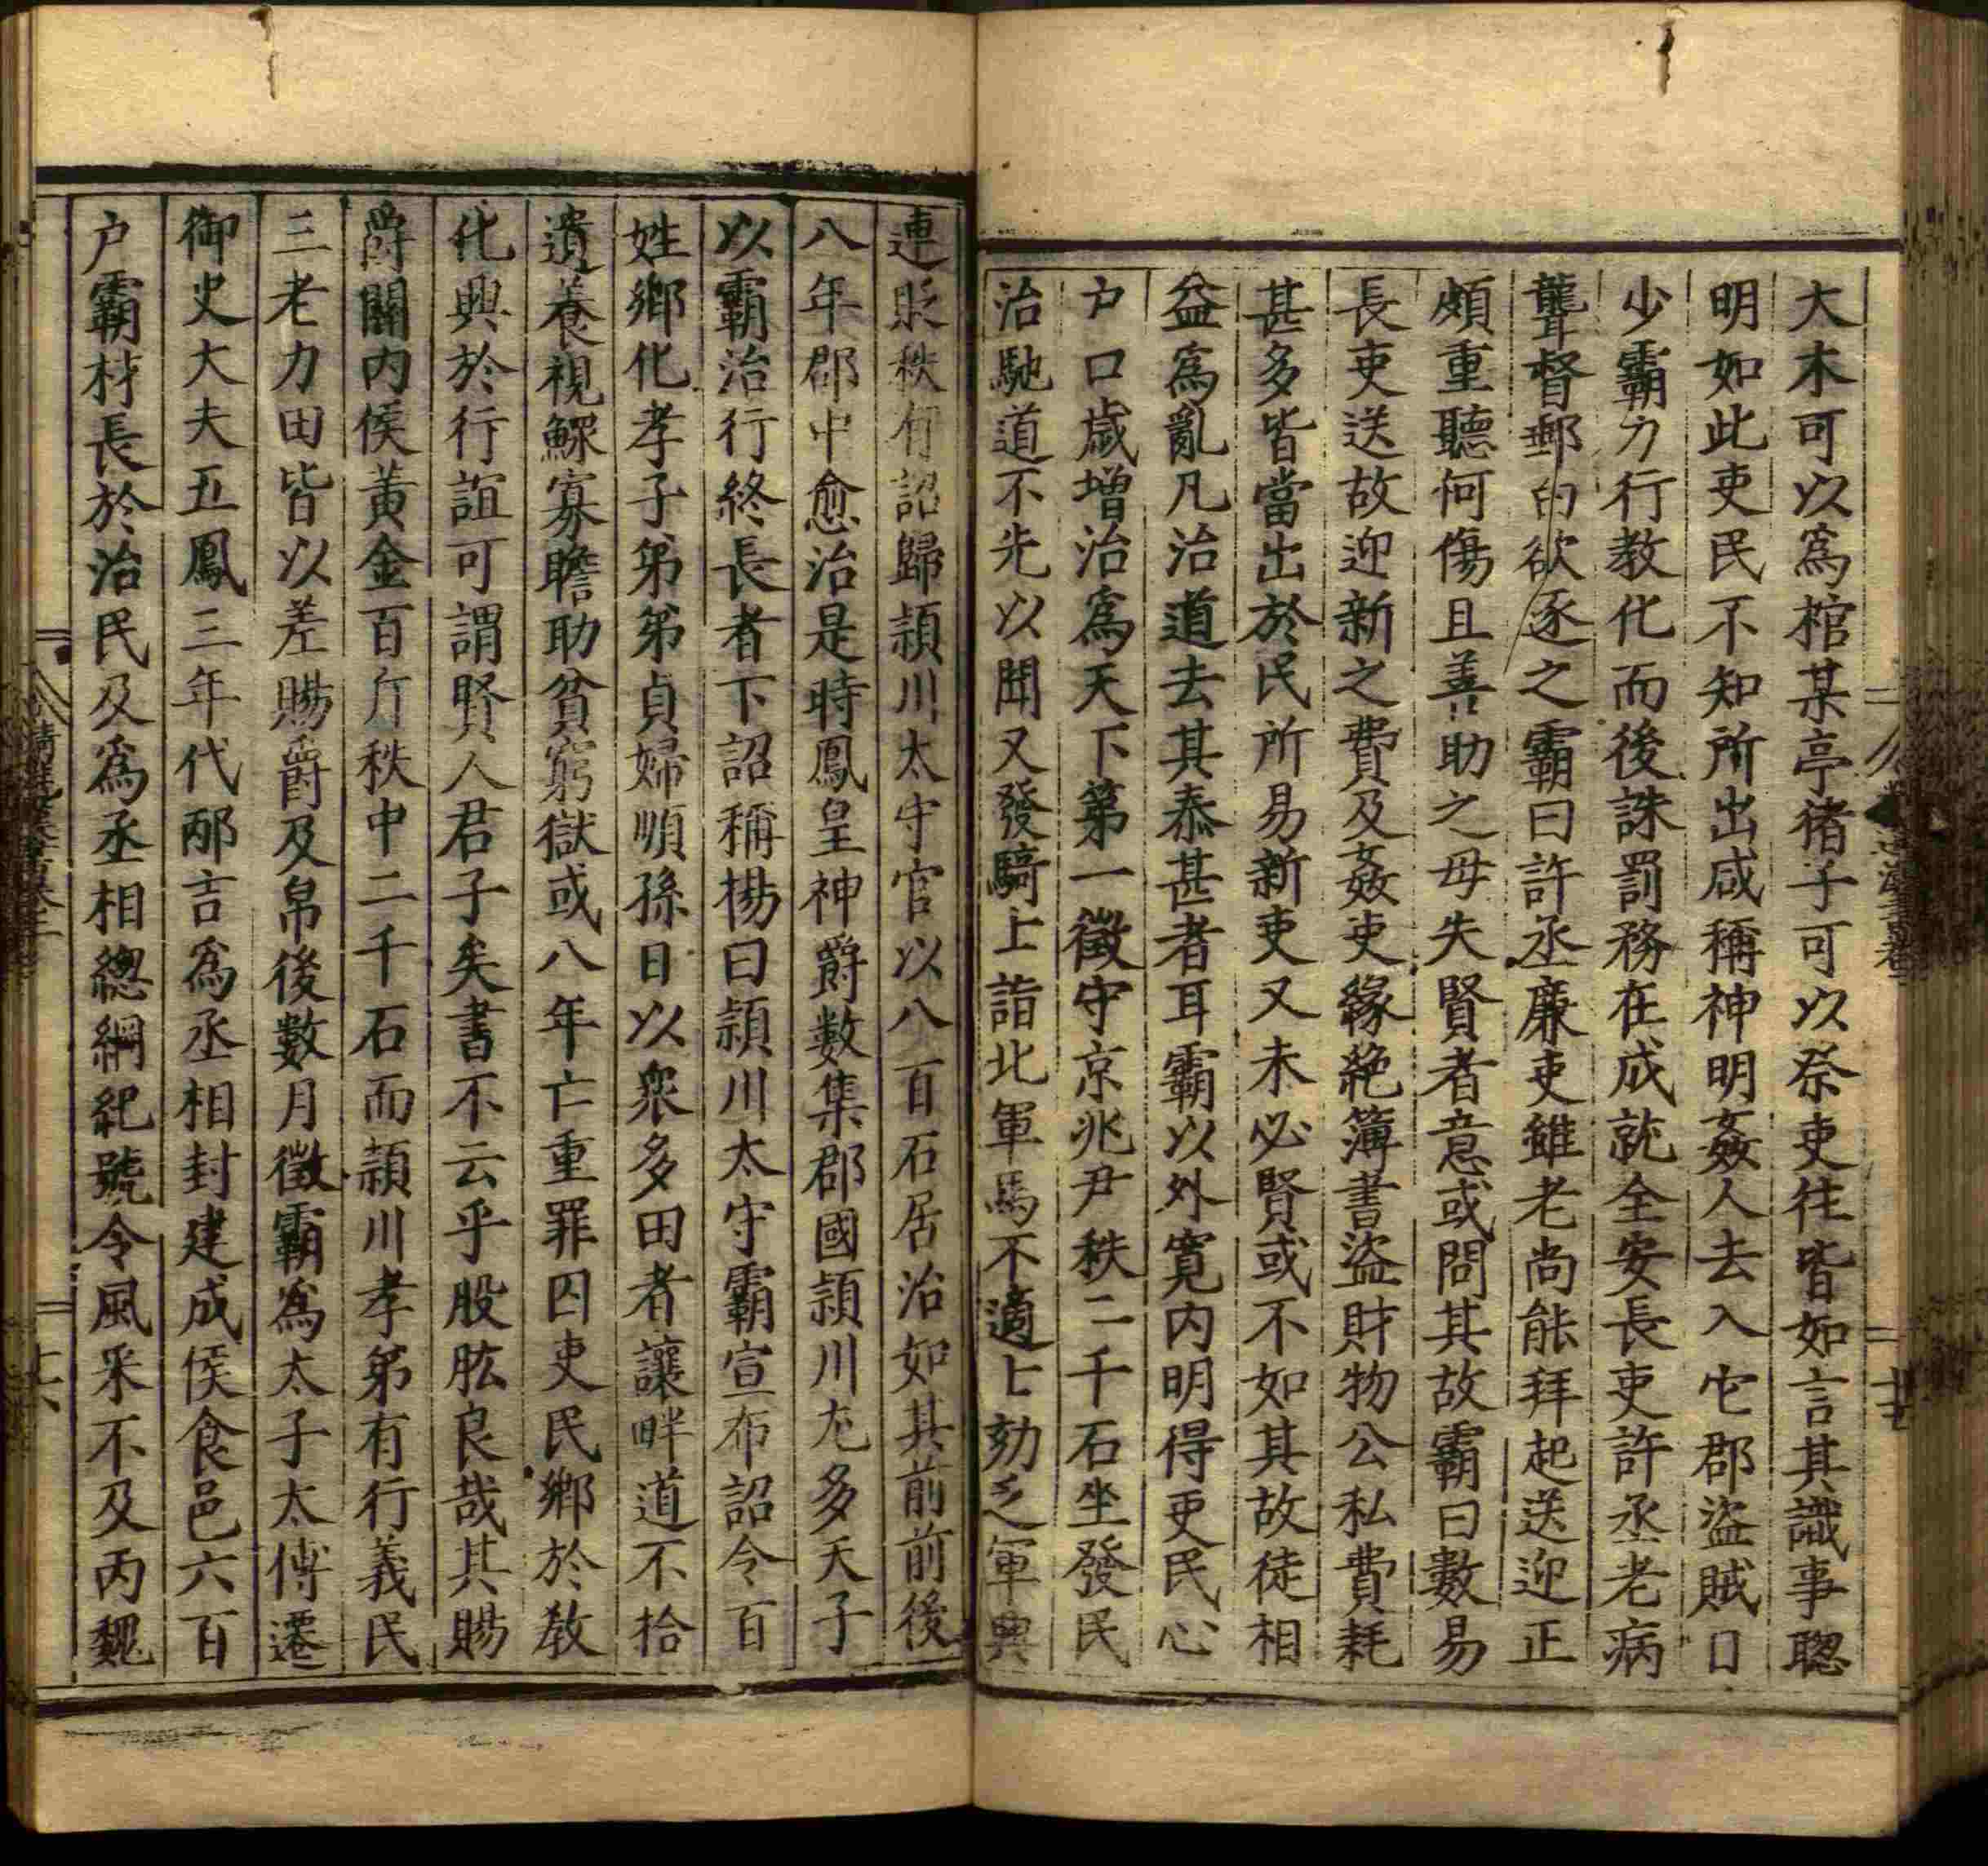 大木可以爲棺某亭猪子可以祭吏往皆如言其識事聦
明如此吏民不知所出咸稱神明姦人去入它郡盜賊日
少霸力行教化而後誅罰務在成就全安長吏許丞老病
聾督郵白欲逐之霸曰許丞廉吏雖老尚能拜起送迎正
頗重聽何傷且善助之毋失賢者意或問其故霸曰數易
長吏送故迎新之費及姦吏緣絶簿書盜財物公私費耗
甚多皆當出於民所易新吏又未必賢或不如其故徒相
益爲亂凡治道去其泰甚者耳霸以外寬内明得吏民心
户口歲增治爲天下第一徵守京兆尹秩二千石坐發民
治馳道不先以聞又發騎士詣北軍馬不適士劾乏軍興
連貶秩有詔歸潁川太守官以八百石居治如其前前後
八年郡中愈治是時鳳皇神爵數集郡國潁川尤多天子
以霸治行終長者下詔稱揚曰潁川太守霸宣布詔令百
姓鄉化孝子弟弟貞婦順孫日以衆多田者讓畔道不拾
遺養視鰥寡贍助貧窮獄或八年亡重罪囚吏民鄉於教
化興於行誼可謂賢人君子矣書不云乎股肱良哉其賜
爵關内侯黃金百斤秩中二千石而潁川孝弟有行義民
三老力田皆以差賜爵及帛後數月徵霸爲太子太傅遷
御史大夫五鳳三年代邴吉爲丞相封建成侯食邑六百
户霸材長於治民及爲丞相總綱紀號令風采不及丙魏